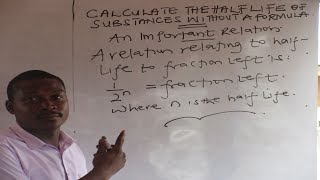 CALCULATE THE HALF LIFE OF
SUBSTANCES WITHOUT A FORMULA.
An Important Relation
A relation relating to half-
Life to fraction left is:
1/2ⁿ = fraction left.
Where n is the half life.